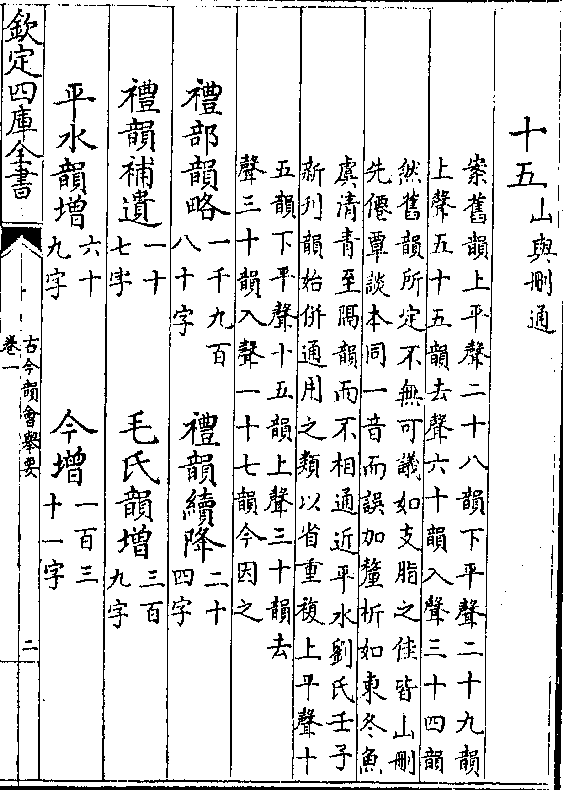 十五 山與刪通
案舊韻上平聲二十八韻下平聲二十九韻
上聲五十五韻去聲六十韻入聲三十四韻
然舊韻所定不無可議如支脂之佳皆山刪
先僊覃談本同一音而誤加釐析如東冬魚
虞清青至隔韻而不相通近平水劉氏壬子
新刋韻始併通用之類以省重複上平聲十
五韻下平聲十五韻上聲三十韻去
聲三十韻入聲一十七韻今因之
禮部韻略 一千九百八十字 禮韻續降 二十四字
禮韻補遺 一十七字 毛氏韻增 三百九字
平水韻增 六十九字 今增 一百三十一字
欽定四庫全書
古今韻會舉要
卷一
二